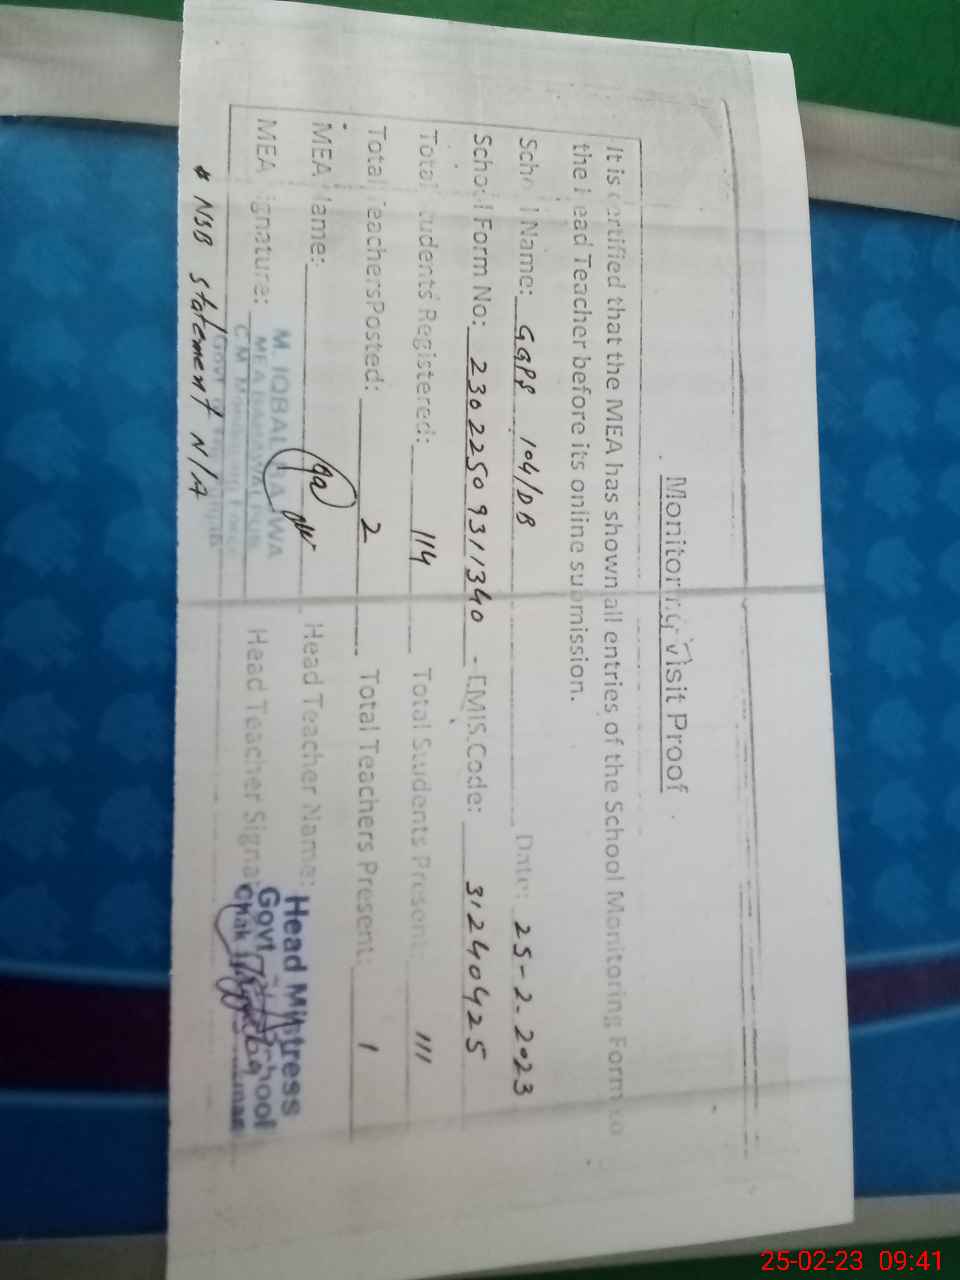 Monitoring Visit Proof
It is certified that the MEA has shown all entries of the School Monitoring Form to
the Head Teacher before its online submission.
School Name: GGPS 104/DB Date: 25-2-2023
School Form No: 23022509311340 - EMIS Code: 31240425
Total Students Registered: 114 Total Students Present: 111
Total Teachers Posted: 2 Total Teachers Present: 1
MEA Name: Head Teacher Name:
MEA Signature: Head Teacher Signa
M. IQBAL
MEA BAHAWALPUR
C.M Monitoring Force
Govt
Head Mistress
Govt School
Chak
* NSB statement N/A
25-02-23 09:41